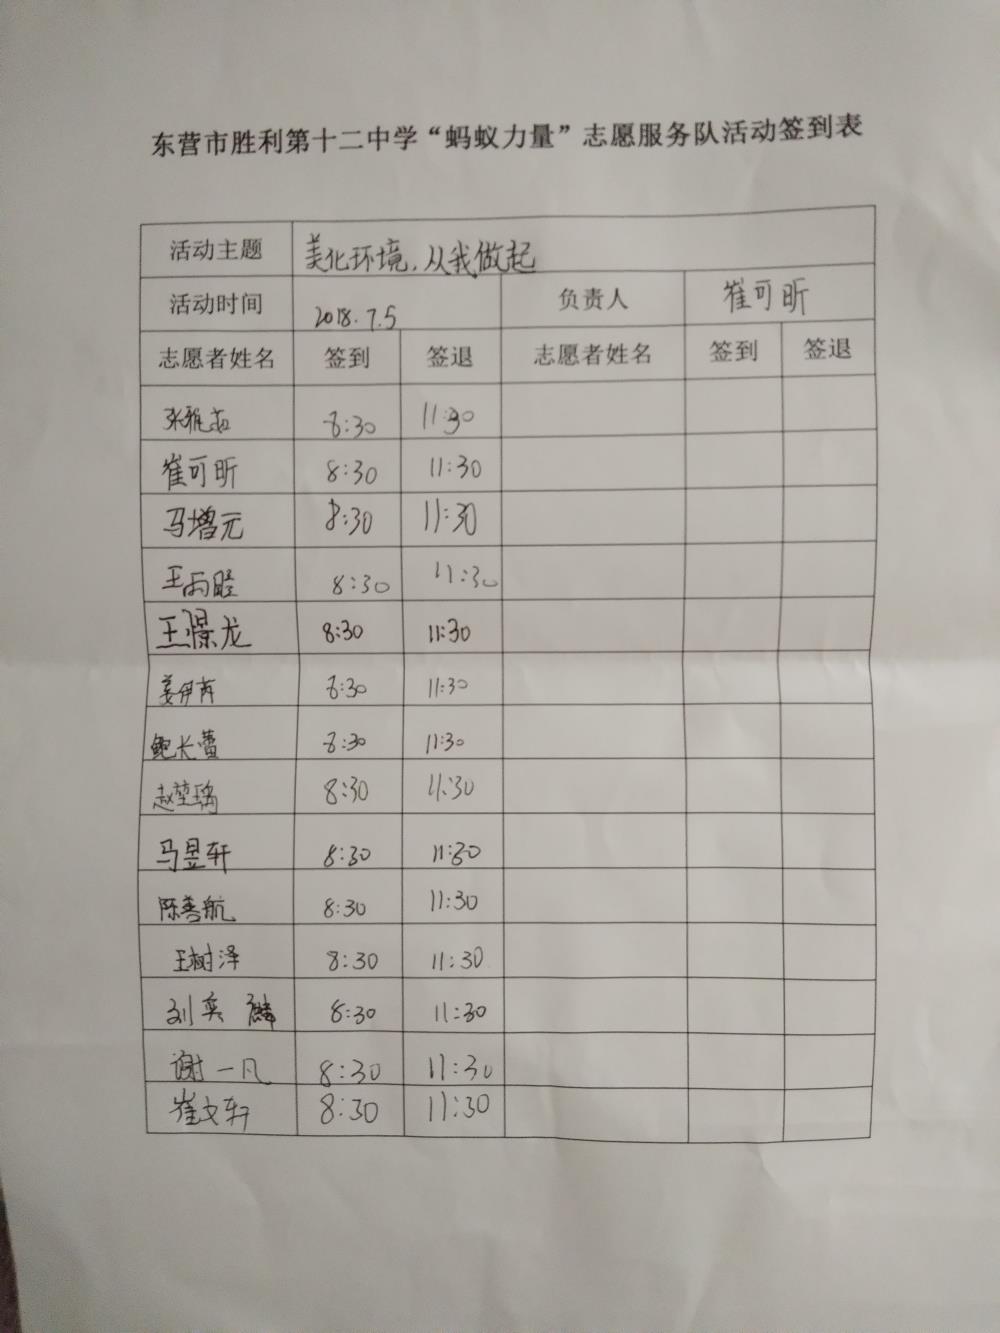 东营市胜利第十二中学“蚂蚁力量”志愿服务队活动签到表
活动主题 美化环境，从我做起
活动时间 2018.7.5 负责人 崔可昕
志愿者姓名 签到 签退 志愿者姓名 签到 签退
8:30 11:30
崔可昕 8:30 11:30
马增元 8:30 11:30
8:30 11:30
王景龙 8:30 11:30
姜伊芮 8:30 11:30
鲍长蕾 8:30 11:30
8:30 11:30
马昱轩 8:30 11:30
陈善航 8:30 11:30
王树泽 8:30 11:30
刘奕麟 8:30 11:30
谢一凡 8:30 11:30
崔文轩 8:30 11:30